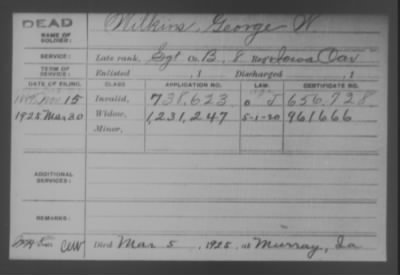 DEAD
Wilkins, George W.
NAME OF SOLDIER:
SERVICE: Late rank, Sgt Co. B, 8 Reg't Iowa Cav
TERM OF SERVICE: Enlisted , 1 Discharged , 1
DATE OF FILING. CLASS. APPLICATION NO. LAW. CERTIFICATE NO.
Nov 15 Invalid, 738,623 656,728
1925 Mar 30 Widow, 1,231,247 5-1-20 961666
Minor,
ADDITIONAL SERVICES:
REMARKS:
CWW Died Mar 5, 1925, at Murray, Ia